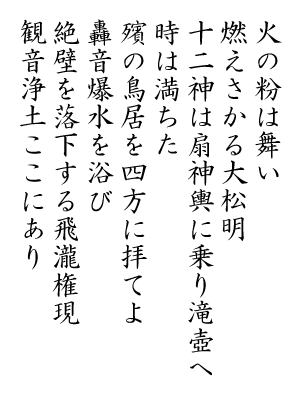 火の粉は舞い
燃えさかる大松明
十二神は扇神輿に乗り滝壺へ
時は満ちた
殯の鳥居を四方に拝てよ
轟音爆水を浴び
絶壁を落下する飛瀧権現
観音浄土ここにあり